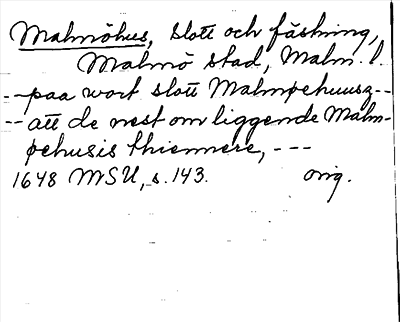 Malmöhus, slott och fästning,
Malmö stad, Malm. l.
-- paa wort slott Malmøehuusz --
-- att de nest omliggende Malm-
øehusis thiennere, ---
1648 MSU, s. 143. orig.